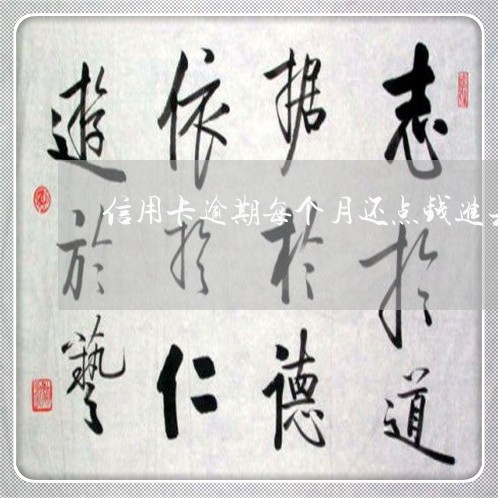 志於道
据於德
依於仁
遊於藝
信用卡逾期每个月还点钱進